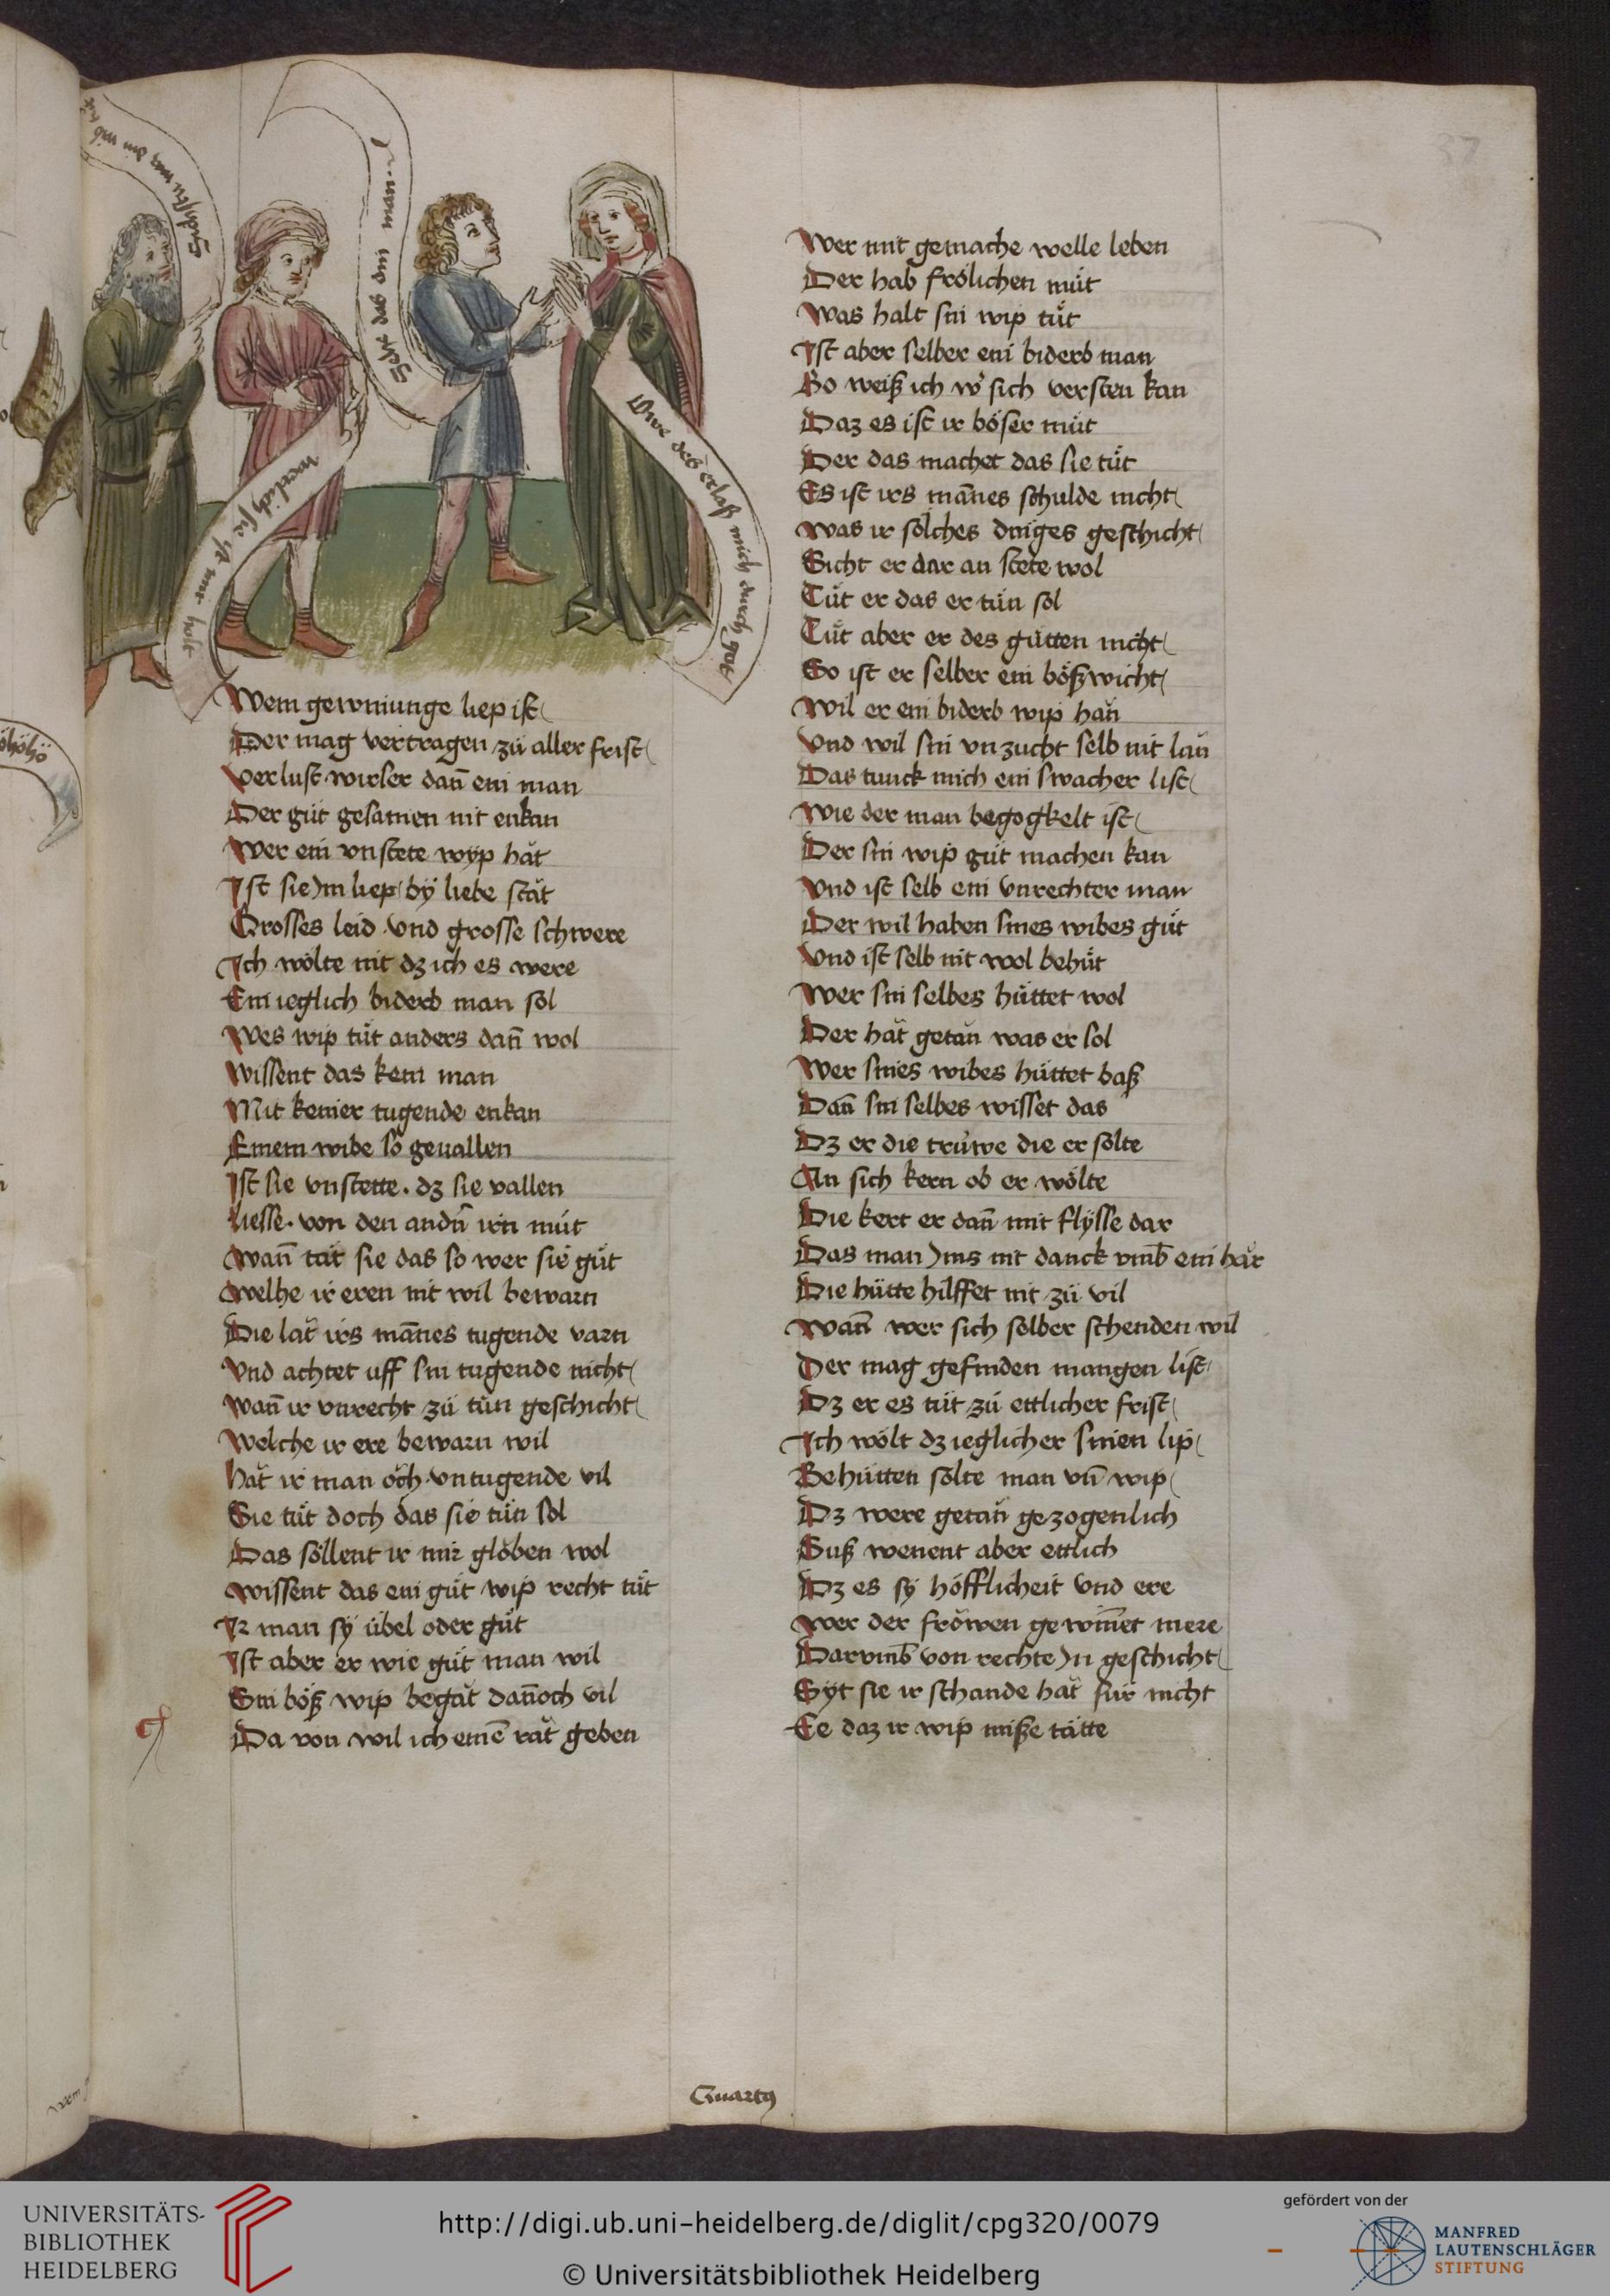 37
Siehstu was din wib tůt
Sich das din man
werlich sie ist mir holt
Owe des erlaß mich durch got
öhöhö
Wem gewinnunge liep ist
Der mag vertragen zů aller frist
Verlust wirser dañ ein man
Der gůt gesamen nit enkan
Wer ein vnstete wyp hăt
Ist sie Jm liep by liebe stăt
Grosses leid vnd grosse schwere
Ich wölte nit dz ich es were
Ein ieglich biderb man sol
Wes wip tůt anders dañ wol
Wissent das kein man
Mit keiner tugende enkan
Einem wibe so geuallen
Ist sie vnstette. dz sie vallen
Liesse. von den andn̄ irn můt
Wañ tăt sie das so wer sie gůt
Welhe ir eren nit wil bewarn
Die lăt irs mānes tugende varn
Vnd achtet uff sin tugende nicht
Wañ ir vnrecht zů tůn geschicht
Welche ir ere bewarn wil
Hăt ir man och vntugende vil
Sie tůt doch das sie tůn sol
Das söllent ir mir glöben wol
Wissent das ein gůt wip recht tůt
Ir man sy übel oder gůt
Ist aber er wie gůt man wil
Sin böß wip begăt dañoch vil
Da von wil ich einē răt geben
Wer mit gemache welle leben
Der hab frölichen můt
Was halt sin wip tůt
Ist aber selber ein biderb man
So weiß ich w' sich versten kan
Daz es ist ir böser můt
Der das machet das sie tůt
Es ist irs mānes schulde nicht
Was ir sölches dinges geschicht
Sicht er dar an stete wol
Tůt er das er tůn sol
Tůt aber er des gůtten nicht
So ist er selber ein bößwicht
Wil er ein biderb wip hăn
Vnd wil sin vnzucht selb nit lăn
Das tunck mich ein swacher list
Wie der man begogkelt ist
Der sin wip gůt machen kan
Vnd ist selb ein vnrechter man
Der wil haben sines wibes gůt
Vnd ist selb nit wol behůt
Wer sin selbes hüttet wol
Der hăt getăn was er sol
Wer sines wibes hüttet baß
Dañ sin selbes wisset das
Dz er die trüwe die er solte
An sich kern ob er wölte
Die kert er dañ mit flysse dar
Das man Jms nit danck vmb ein hăr
Die hütte hilffet nit zů vil
Wañ wer sich selber schenden wil
Der mag gefinden mangen list
Dz er es tůt zů ettlicher frist
Ich wölt dz ieglicher sinen lip
Behütten sölte man vn̄ wip
Dz were getăn gezogenlich
Suß wenent aber ettlich
Dz es sy höfflicheit vnd ere
Wer der fröwen gewiñet mere
Darvmb von rechte Jn geschicht
Syt sie ir schande hăt für nicht
Ee daz ir wip miße tätte
Quartus
UNIVERSITÄTS-
BIBLIOTHEK
HEIDELBERG
http://digi.ub.uni-heidelberg.de/diglit/cpg320/0079
© Universitätsbibliothek Heidelberg
gefördert von der
MANFRED
LAUTENSCHLÄGER
STIFTUNG